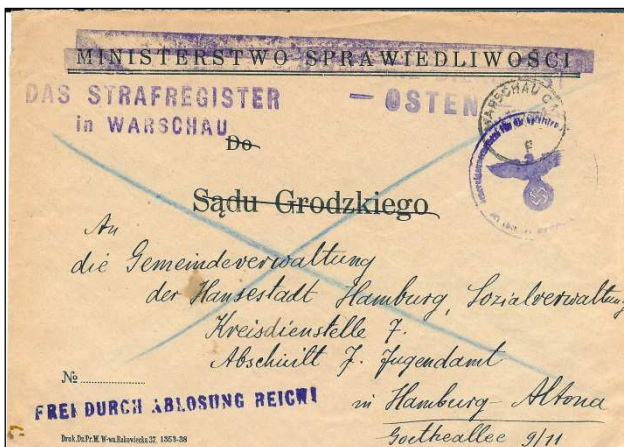 MINISTERSTWO SPRAWIEDLIWOŚCI
DAS STRAFREGISTER
in WARSCHAU
— OSTEN —
WARSCHAU C1
Do
Sądu Grodzkiego
An
die Gemeindeverwaltung
der Hansestadt Hamburg, Sozialverwaltung
Kreisdienstelle 7.
Abschnitt 7. Jugendamt
in Hamburg-Altona
Goetheallee 9/11
№
FREI DURCH ABLOSUNG REICH!
Druk. Dz. Pr. M. W-wa, Rakowiecka 37. 1353-38